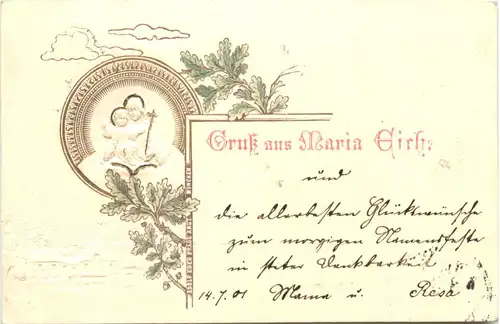 Gruß aus Maria Eich.
und
die allerbesten Glückwünsche
zum morgigen Namensfeste
in steter Dankbarkeit
14.7.01 Mama u. Resa